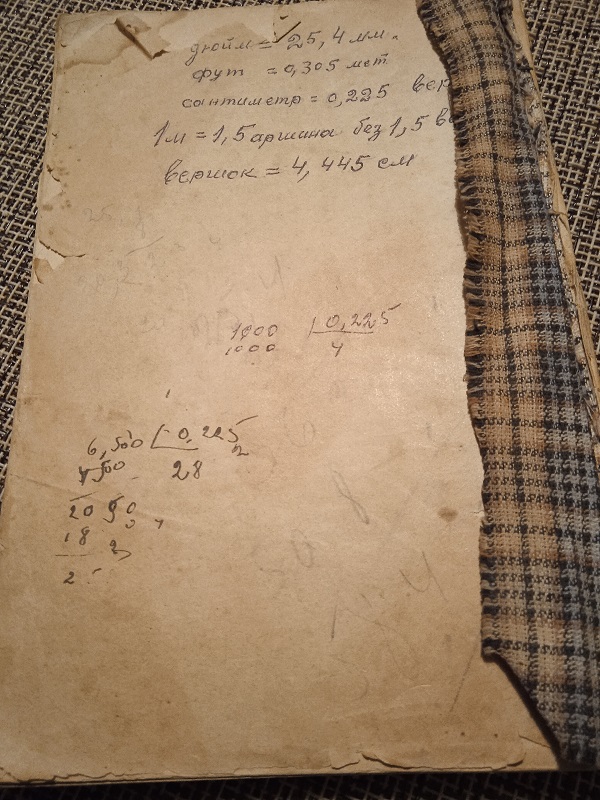 дюйм = 25,4 мм.
фут = 0,305 мет
сантиметр = 0,225 вер
1м = 1,5 аршина без 1,5 ве
вершок = 4,445 см
1000 0,225
1000 4
6,500 0,225
4500 28
20
18
2